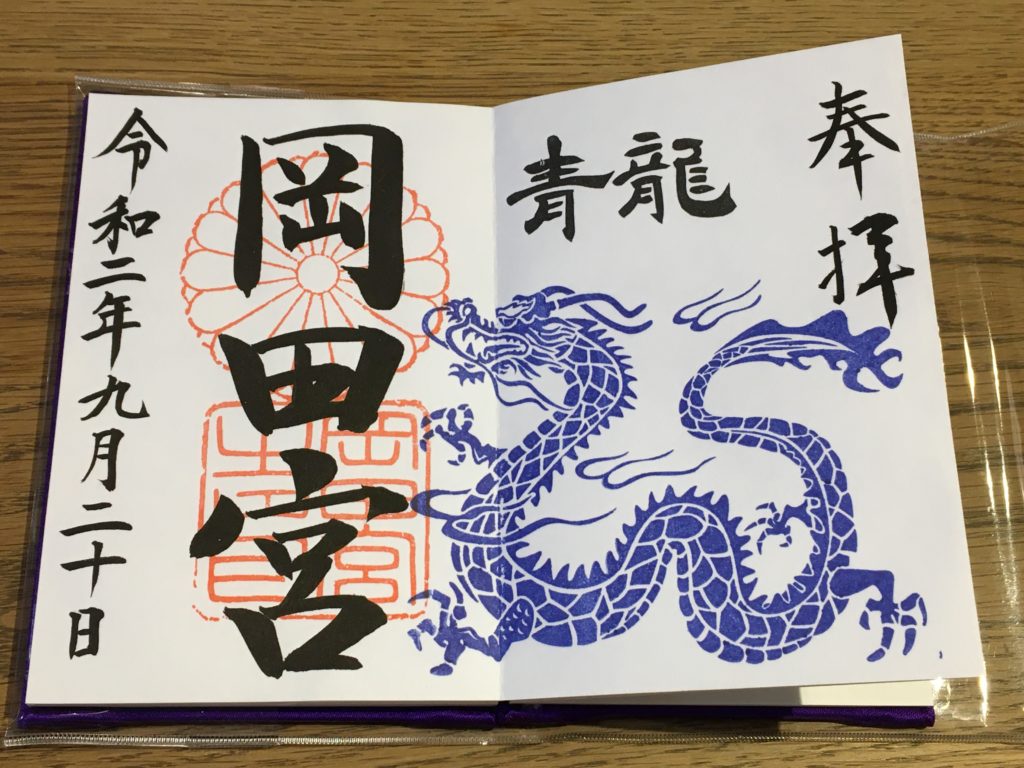 奉拝
青龍
岡田宮
令和二年九月二十日